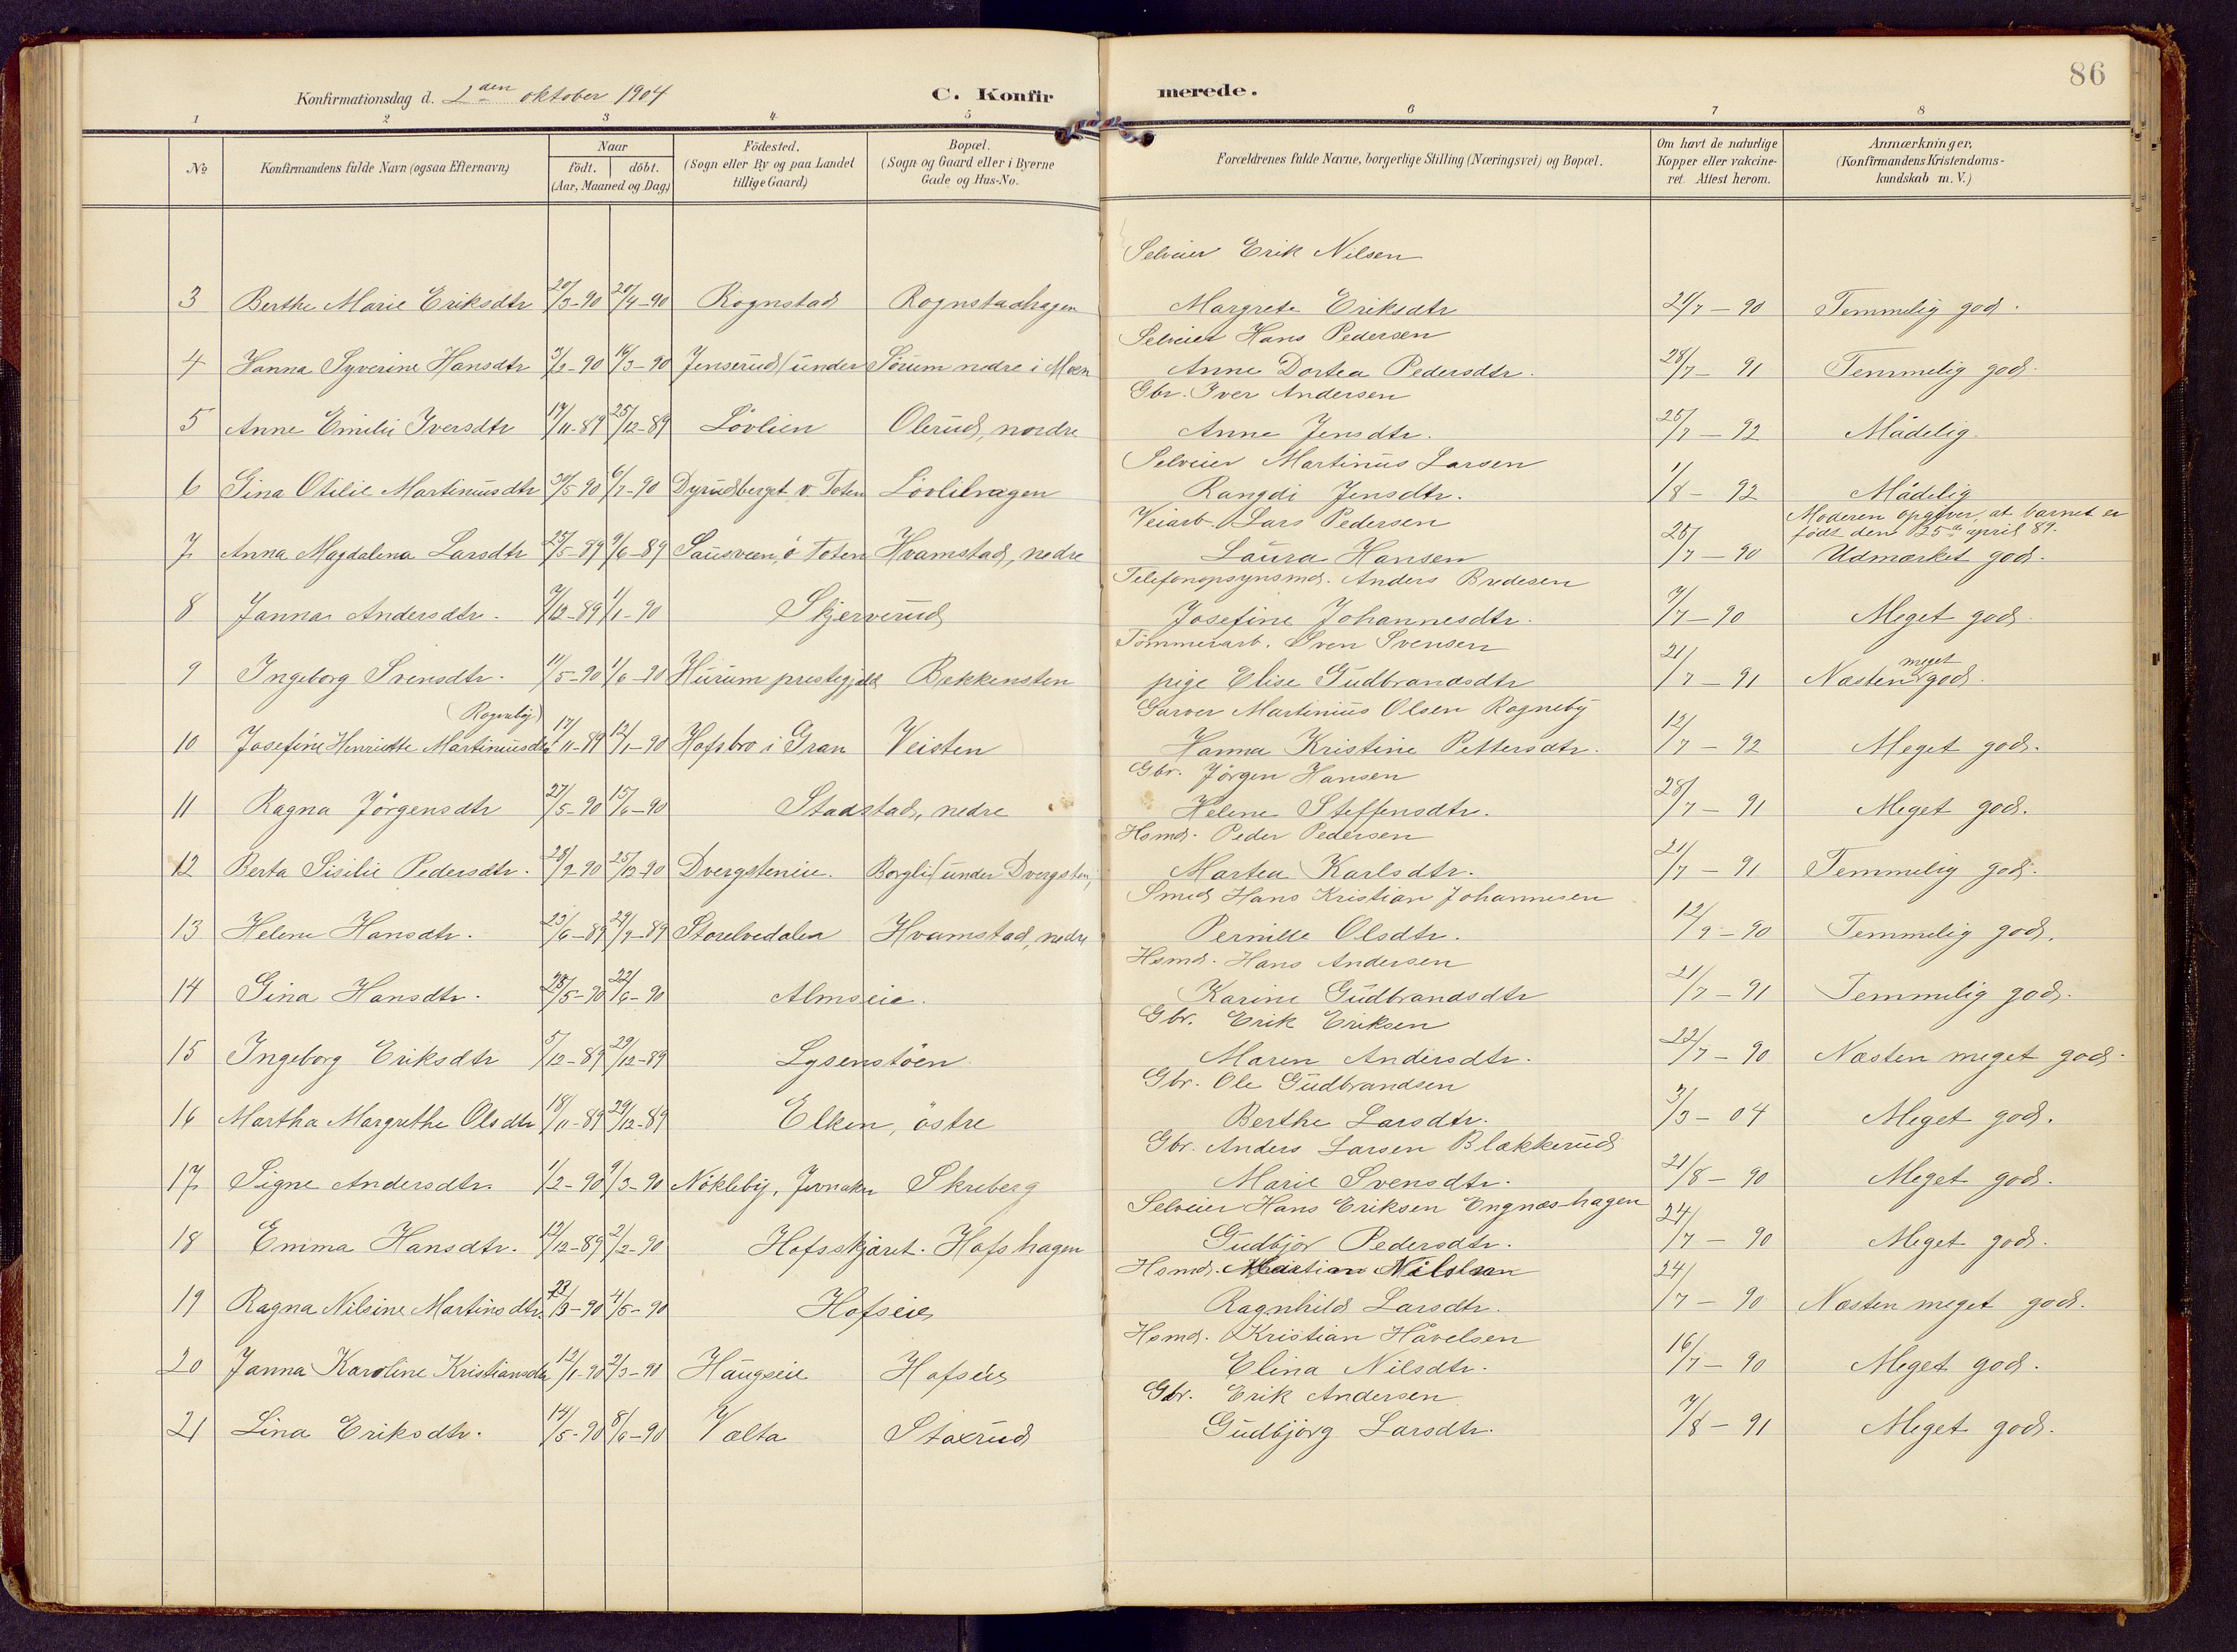 86
Konfirmationsdag d. 2den oktober 1904
C. Konfirmerede.
1 2 3 4 5 6 7 8
No Konfirmandens fulde Navn (ogsaa Efternavn) Naar födt. döbt. (Aar, Maaned og Dag) Födested. (Sogn eller By og paa Landet tillige Gaard) Bopæl. (Sogn og Gaard eller i Byerne Gade og Hus-No. Forældrenes fulde Navne, borgerlige Stilling (Næringsvei) og Bopæl. Om havt de naturlige Kopper eller vakcineret. Attest herom. Anmærkninger. (Konfirmandens Kristendomskundskab m. V.)
Selveier Erik Nilsen
3 Berthe Marie Eriksdtr 20/3-90 20/4-90 Rognstad Rognstadhagen Margrete Eriksdtr 21/7-90 Temmelig god.
Selveier Hans Pedersen
4 Hanna Syverine Hansdtr 3/2-90 16/3-90 Jenserud (under Sörum nedre i Moen Anne Dortea Pedersdtr. 28/7-91 Temmelig god.
Gbr. Iver Andersen
5 Anne Emilie Iversdtr 17/11-89 25/12-89 Lövlien Olerud, nordre Anne Jensdtr. 25/7-92 Mådelig.
Selveier Martinus Larsen
6 Gina Otilie Martinusdtr 30/5-90 6/7-90 Dyrudberget v. Toten Lövlihagen Rangdi Jensdtr. 1/8-92 Mådelig
Veiarb. Lars Pedersen
Moderen opgiver, at barnet er
født den 25de april 89.
7 Anna Magdalena Larsdtr 25/5-89 9/6-89 Sausveen, ö. Toten Hvamstad, nedre Laura Hansen 25/7-90 Udmærket god.
Telefonopsynsmd. Anders Bredesen
8 Janna Andersdtr. 7/12-89 1/1-90 Skjerverud Josefine Johannesdtr. 7/7-90 Meget god.
Tömmerarb. Sven Svensen
9 Ingeborg Svensdtr. 11/5-90 1/6-90 Hurum prestegjeld Bekkensten pige Elise Gudbrandsdtr 21/7-91 Næsten meget god.
Garver Martinius Olsen Rogneby
10 Josefine Henriette Martiniusdtr (Rogneby) 17/11-89 12/1-90 Hofsbro i Gran Veisten Hanna Kristine Pettersdtr. 12/7-92 Meget god.
Gbr. Jörgen Hansen
11 Ragna Jörgensdtr 27/5-90 15/6-90 Stadstad, nedre Helene Steffensdtr. 28/7-91 Meget god.
Hsmd. Peder Pedersen
12 Berta Sisilie Pedersdtr. 28/9-90 25/12-90 Dvergsteneie. Borgli (under Dvergsten, Martea Karlsdtr. 21/7-91 Temmelig god.
Smed Hans Kristian Johannesen
13 Helene Hansdtr. 23/6-89 29/9-89 Storelvedalen Hvamstad, nedre Pernille Olsdtr. 12/9-90 Temmelig god.
Hsmd. Hans Andersen
14 Gina Hansdtr. 28/5-90 22/6-90 Almseie. Karine Gudbrandsdtr 21/7-91 Temmelig god.
Gbr. Erik Eriksen
15 Ingeborg Eriksdtr 5/12-89 29/12-89 Lysenstöen Maren Andersdtr. 22/7-90 Næsten meget god.
Gbr. Ole Gudbrandsen
16 Martha Margrethe Olsdtr 18/11-89 29/12-89 Elken, östre Berthe Larsdtr. 3/3-04 Meget god.
Gbr. Anders Larsen Blækkerud
17 Signe Andersdtr. 1/2-90 9/3-90 Nökleby, Jevnaker Skreberg Marie Svensdtr. 21/8-90 Meget god.
Selveier Hans Eriksen Engnæshagen
18 Emma Hansdtr. 12/12-89 2/2-90 Hofsskjæret. Hofshagen Gudbjör Pedersdtr. 24/7-90 Meget god.
Hsmd. Martian Nilsen
19 Ragna Nilsine Martinsdtr. 22/3-90 4/5-90 Hofseie Ragnhild Larsdtr. 24/7-90 Næsten meget god.
Hsmd. Kristian Håvelsen
20 Janna Karoline Kristiansdtr 12/1-90 2/3-90 Haugseie Hofseie Elina Nilsdtr. 16/7-90 Meget god.
Gbr. Erik Andersen
21 Lina Eriksdtr. 14/5-90 8/6-90 Vælta Staxrud Gudbjörg Larsdtr. 7/8-91 Meget god.